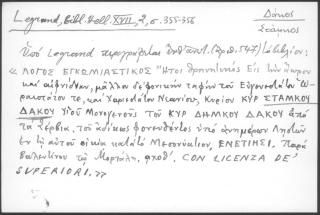 Legrand, Bibl. Hell. XVII, 2, σ. 355-356
Δάκος
Στάμκος
Ὑπὸ Legrand περιγράφεται (ἀριθ. 547) βιβλίον:
« ΛΟΓΟΣ ΕΓΚΩΜΙΑΣΤΙΚΟΣ Ἤτοι Θρηνητικὸς Εἰς τὸν ἄωρον
καὶ αἰφνίδιον, μᾶλλον δὲ φονικὴν ταφὴν τοῦ Εὐγενεστάτου
Ὡραιοτάτου τε, καὶ Χαριεστάτου Νεανίου, Κυρίου ΚΥΡ ΣΤΑΜΚΟΥ
ΔΑΚΟΥ Υἱοῦ Μονογενοῦς τοῦ ΚΥΡ ΔΗΜΚΟΥ ΔΑΚΟΥ ἀπὸ
τὰ Σέρβια, τοῦ ἀδίκως φονευθέντος ὑπὸ ἀνημέρων Λῃστῶν
ἐν τῇ αὐτοῦ οἰκίᾳ κατὰ τὸ Μεσονύκτιον, ΕΝΕΤΙΗΣΙ. Παρὰ
Βαλεντίνου τῷ Μορτάλῃ, CON LICENZA DE'
SUPERIORI. »